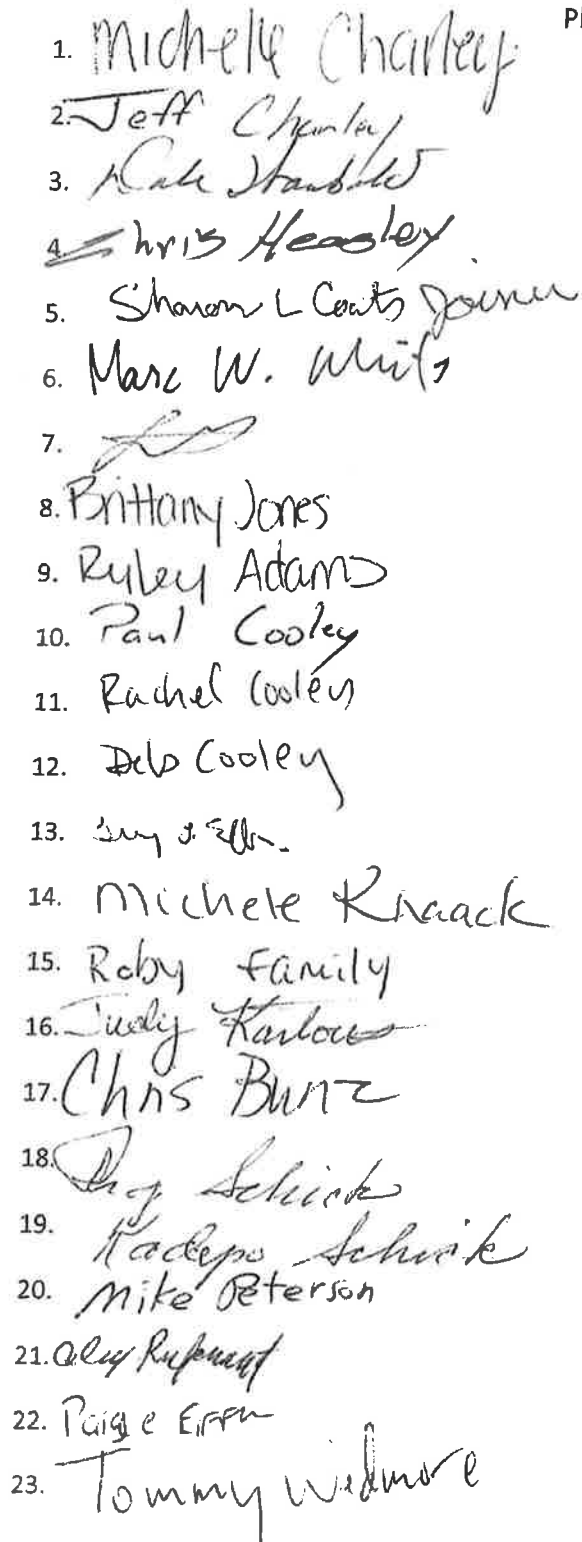 P
1. Michelle Charley
2. Jeff Charley
3. Dale
4. Chris Heasley
5. Sharon L Coats Joiner
6. Marc W. White
7.
8. Brittany Jones
9. Ryley Adams
10. Paul Cooley
11. Rachel Cooley
12. Deb Cooley
13.
14. Michele Knaack
15. Roby Family
16. Judy Karlow
17. Chris Bunz
18. Schick
19. Schick
20. Mike Peterson
21.
22. Paige
23. Tommy Widmore